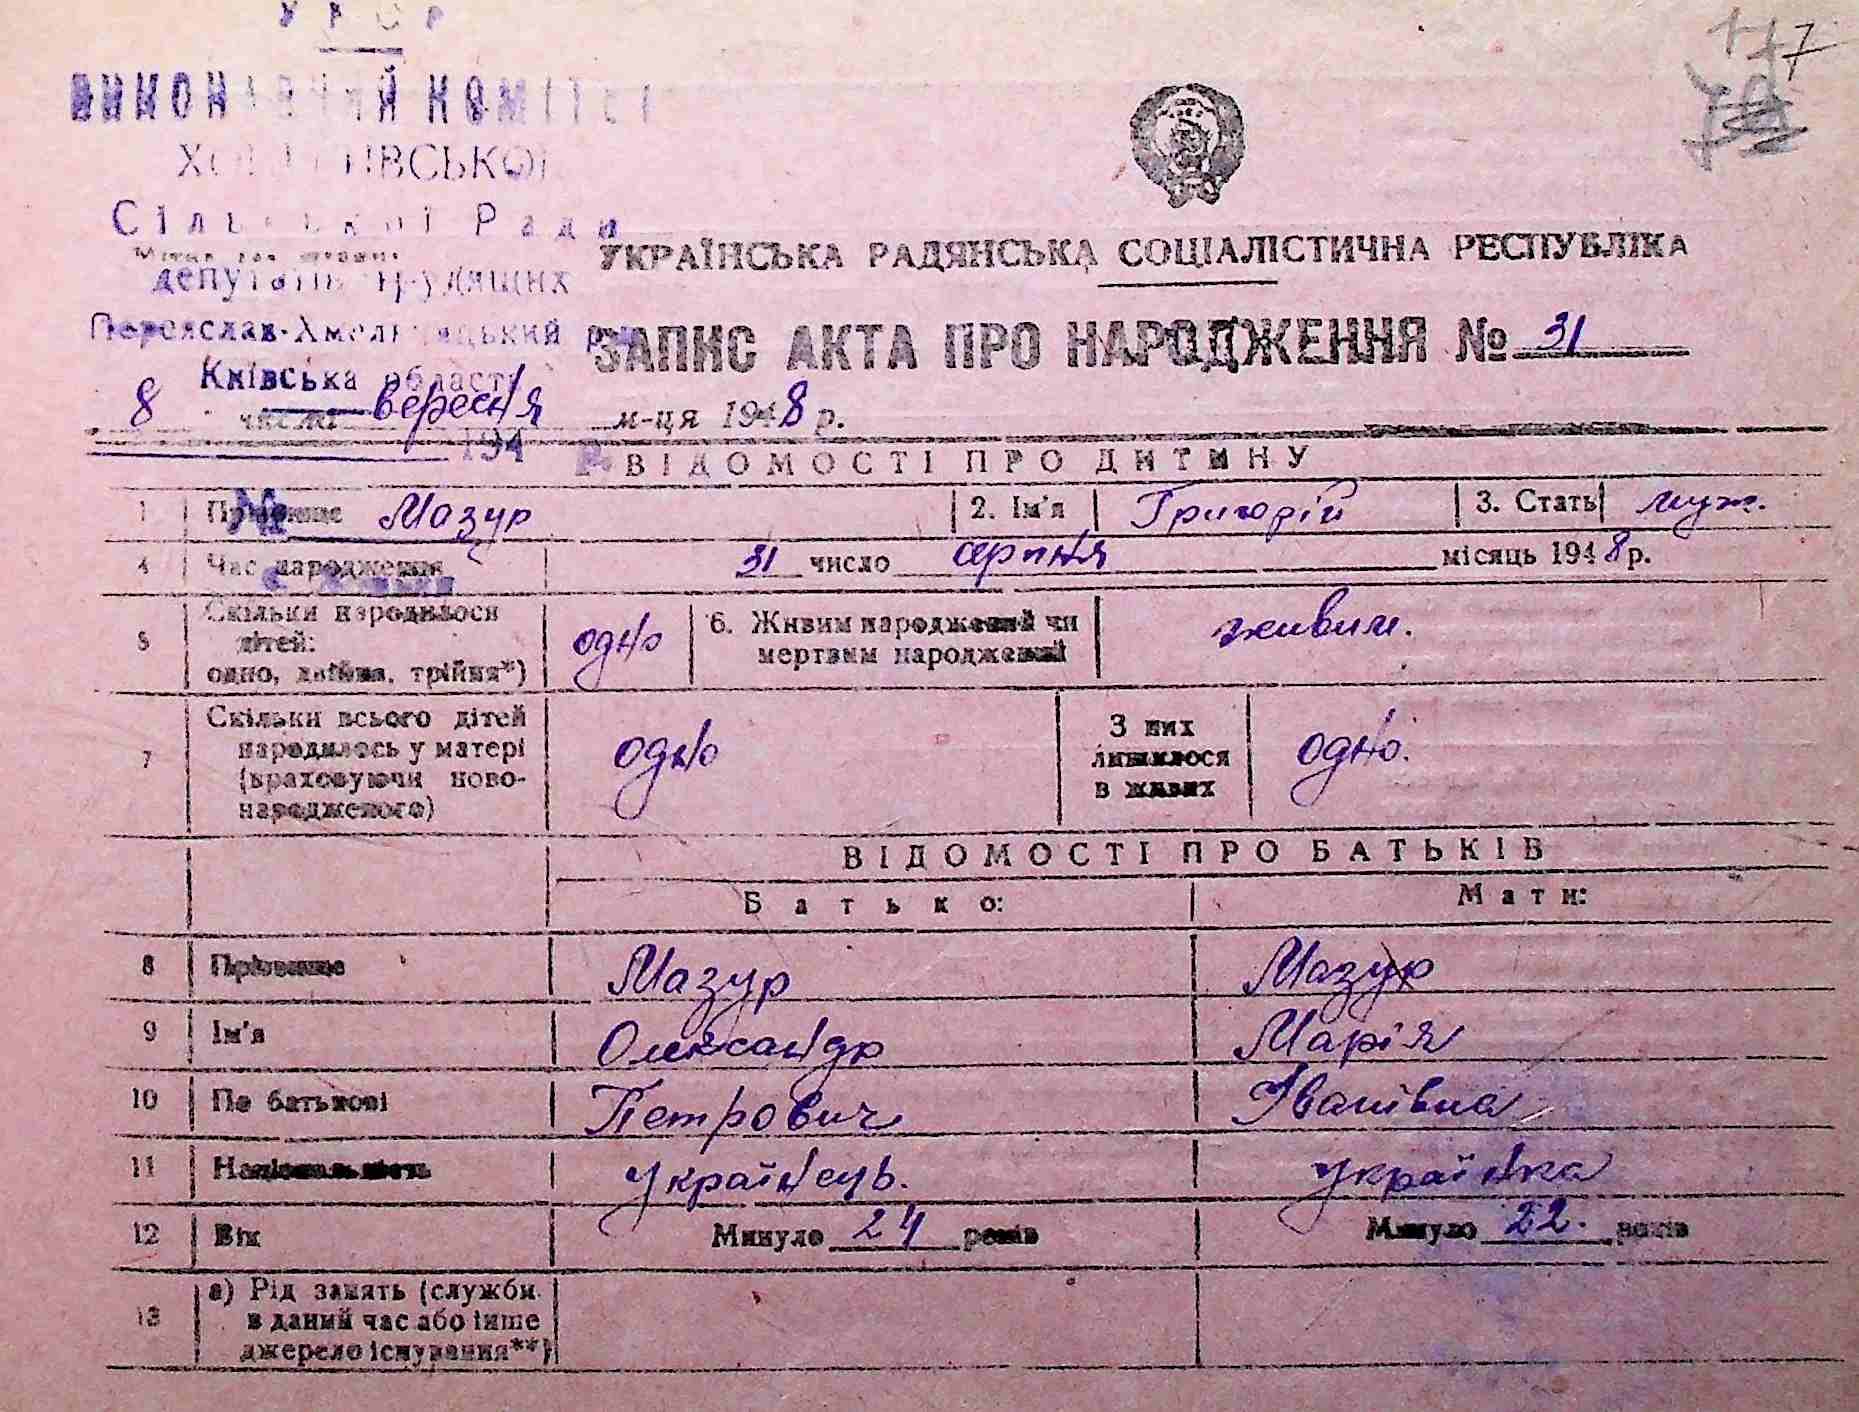 УРСР
117
ВИКОНАВЧИЙ КОМІТЕТ
Сільської Ради
депутатів трудящих
Переяслав-Хмельницький р-н
Київська область
194
№
УКРАЇНСЬКА РАДЯНСЬКА СОЦІАЛІСТИЧНА РЕСПУБЛІКА
ЗАПИС АКТА ПРО НАРОДЖЕННЯ № 31
8 числа вересня м-ця 1948 р.
ВІДОМОСТІ ПРО ДИТИНУ
1 Прізвище Мазур 2. Ім'я Григорій 3. Стать муж.
4 Час народження 31 число серпня місяць 1948 р.
5 Скільки народилося
дітей:
одно, двійня, трійня*) одно 6. Живим народжений чи
мертвим народжений живим.
7 Скільки всього дітей
народилось у матері
(враховуючи ново-
народженого) одно З них
лишилося
в живих одно.
ВІДОМОСТІ ПРО БАТЬКІВ
Батько: Мати:
8 Прізвище Мазур Мазур
9 Ім'я Олександр Марія
10 По батькові Петрович Іванівна
11 Національність Українець. Українка
12 Вік Минуло 24 років Минуло 22. років
13 а) Рід занять (служби
в даний час або інше
джерело існування**)